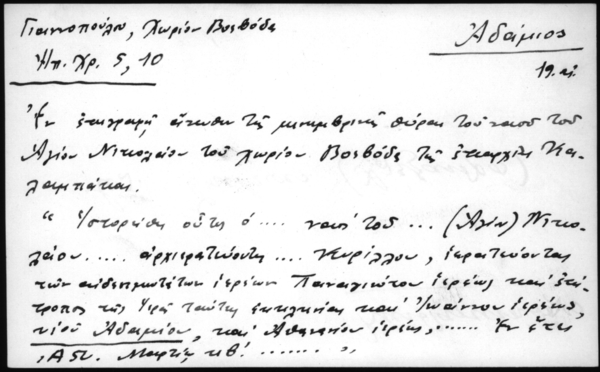 Γιαννοπούλου, Χωρίον Βοεβόδα
Ἠπ. Χρ. 5, 10
Ἀδάμιος
19 αἰ.
Ἐν ἐπιγραφῇ ἄνωθεν τῆς μεσημβρινῆς θύρας τοῦ ναοῦ τοῦ
Ἁγίου Νικολάου τοῦ χωρίου Βοεβόδα τῆς ἐπαρχίας Κα-
λαμπάκας.
“ Ἱστορήθη οὗτος ὁ .... ναὸς τοῦ ... (Ἁγίου) Νικο-
λάου ..... ἀρχιερατεύοντος .... Κυρίλλου, ἱερατεύοντας
τῶν αἰδεσιμωτάτων ἱερέων Παναγιώτου ἱερέως καὶ ἐπί-
τροπος τῆς ἱερᾶς ταύτης ἐκκλησίας καὶ Ἰωάννου ἱερέως,
υἱοῦ Ἀδαμίου, καὶ Ἀθανασίου ἱερέως, ...... Ἐν ἔτει
Μαρτίῳ κθʹ ....... ”